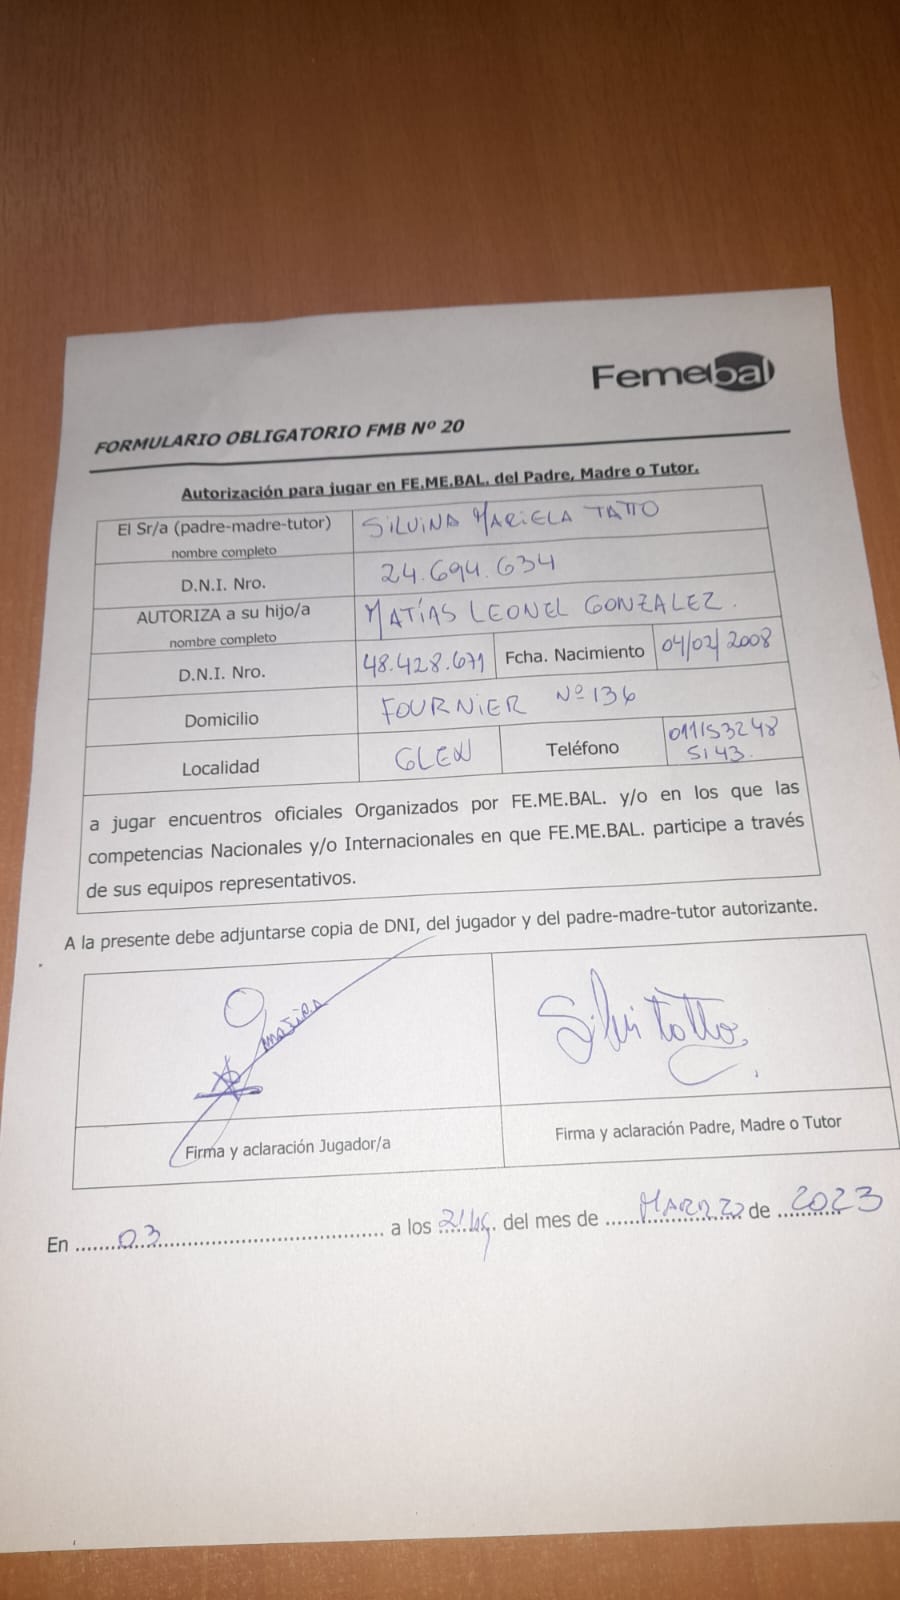 Femebal
FORMULARIO OBLIGATORIO FMB Nº 20
Autorización para jugar en FE.ME.BAL. del Padre, Madre o Tutor.
El Sr/a (padre-madre-tutor) SILVINA MARIELA TATTO
nombre completo
D.N.I. Nro. 24.694.634
AUTORIZA a su hijo/a MATÍAS LEONEL GONZALEZ.
nombre completo
D.N.I. Nro. 48.428.671 Fcha. Nacimiento 04/02/2008
Domicilio FOURNIER Nº 136
Localidad GLEW Teléfono 011153248
5143.
a jugar encuentros oficiales Organizados por FE.ME.BAL. y/o en los que las
competencias Nacionales y/o Internacionales en que FE.ME.BAL. participe a través
de sus equipos representativos.
A la presente debe adjuntarse copia de DNI, del jugador y del padre-madre-tutor autorizante.
matias
Silvi tatto
Firma y aclaración Jugador/a Firma y aclaración Padre, Madre o Tutor
En 03 a los del mes de de 2023